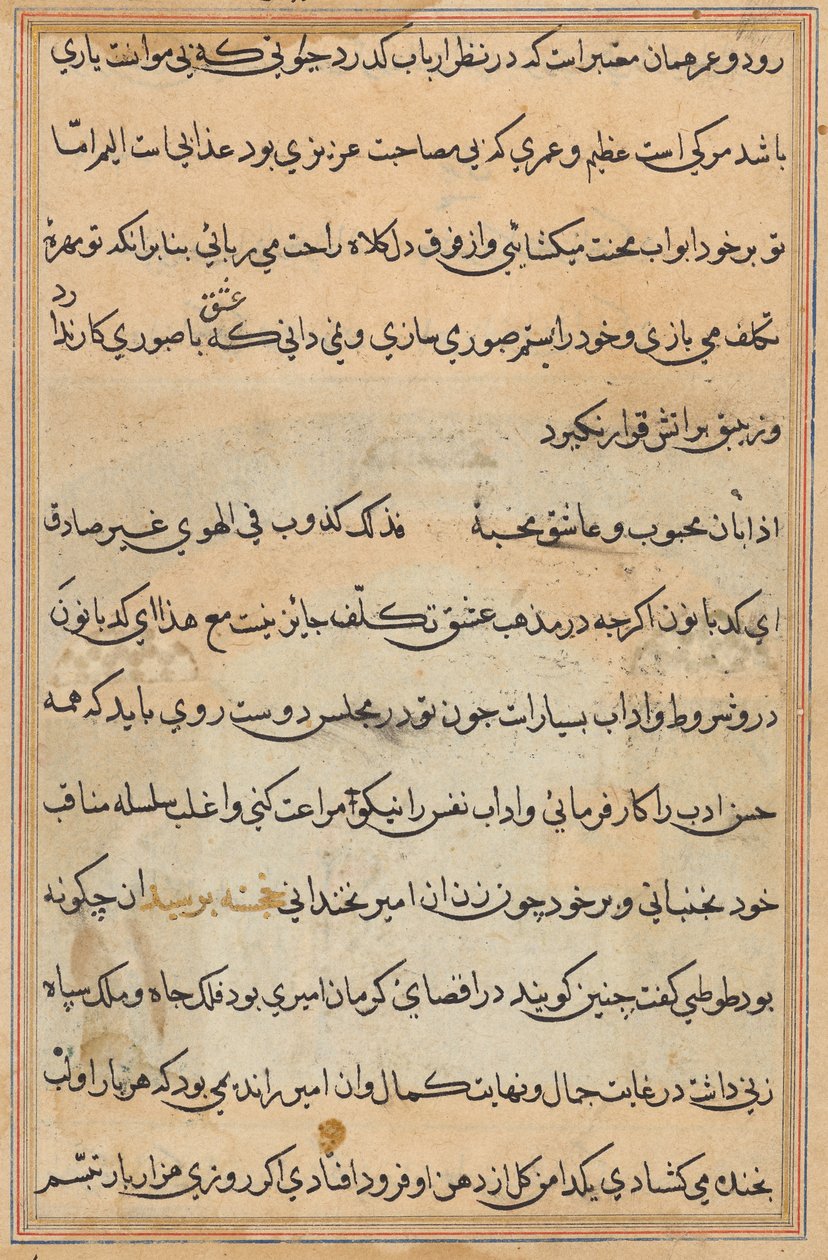 رود و عمر همان معتبر است که در نظر ارباب کدرد حیوتی که بی موانست یاری
باشد مرکی است عظیم و عمری که بی مصاحبت عزیزی بود عذابی است الیم امّا
تو بر خود ابواب محنت میکشائی و از فرق دل کلاه راحت می ربائی بنا برانکه تو مهرهٔ
تکلف می بازی و خود را بستم صبوری سازی و نمی دانی که عشق با صبوری کار ندارد
و زیبق بر اتش قرار نکیرد
اذا بان محبوب و عاشق محبه فذلک کذوب فی الهوی غیر صادق
ای کدبانون اکرجه در مذهب عشق تکلّف جائز نیست مع هذا ای کدبانون
درو شروط و اداب بسیار است جون تو در مجلس دوست روی باید که همه
حسن ادب را کار فرمائی و اداب نفس را نیکو مراعت کنی و اغلب سلسله مناقب
خود بجنبانی و بر خود چون زن ان امیر نخندانی خجسته برسید ان چکونه
بود طوطی کفت چنین کویند در اقصای کرمان امیری بود فلک جاه و ملک سپاه
زنی داشت در غایت جمال و نهایت کمال و ان امیر را ندیمی بود که هر بار او لب
بخنده می کشادی یکدامن کل از دهن او فرود افتادی اکر روزی هزار بار تبسّم